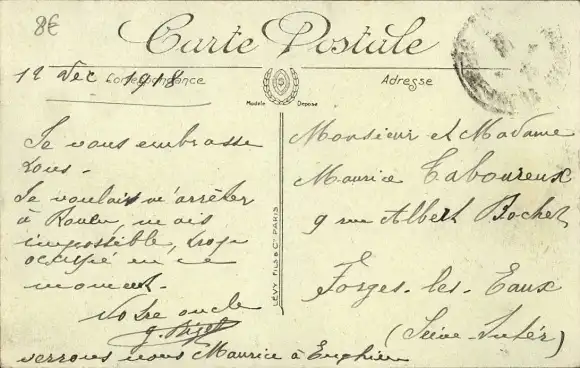 8€
Carte Postale
12 Dec 1918
Correspondance
Adresse
Modèle Déposé
Je vous embrasse
tous.
Je voulais m'arrêter
à Rouen, mais
impossible, trop
occupé en ce
moment.
Votre oncle
verrons nous Maurice à Enghien
LÉVY FILS & Cie PARIS
Monsieur et Madame
Maurice Caboureux
9 rue Albert Bochet
Forges-les-Eaux
(Seine-Infér)